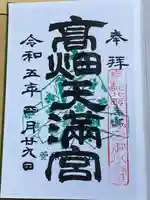 奉拝
髙畑天満宮
令和五年 月廿九日